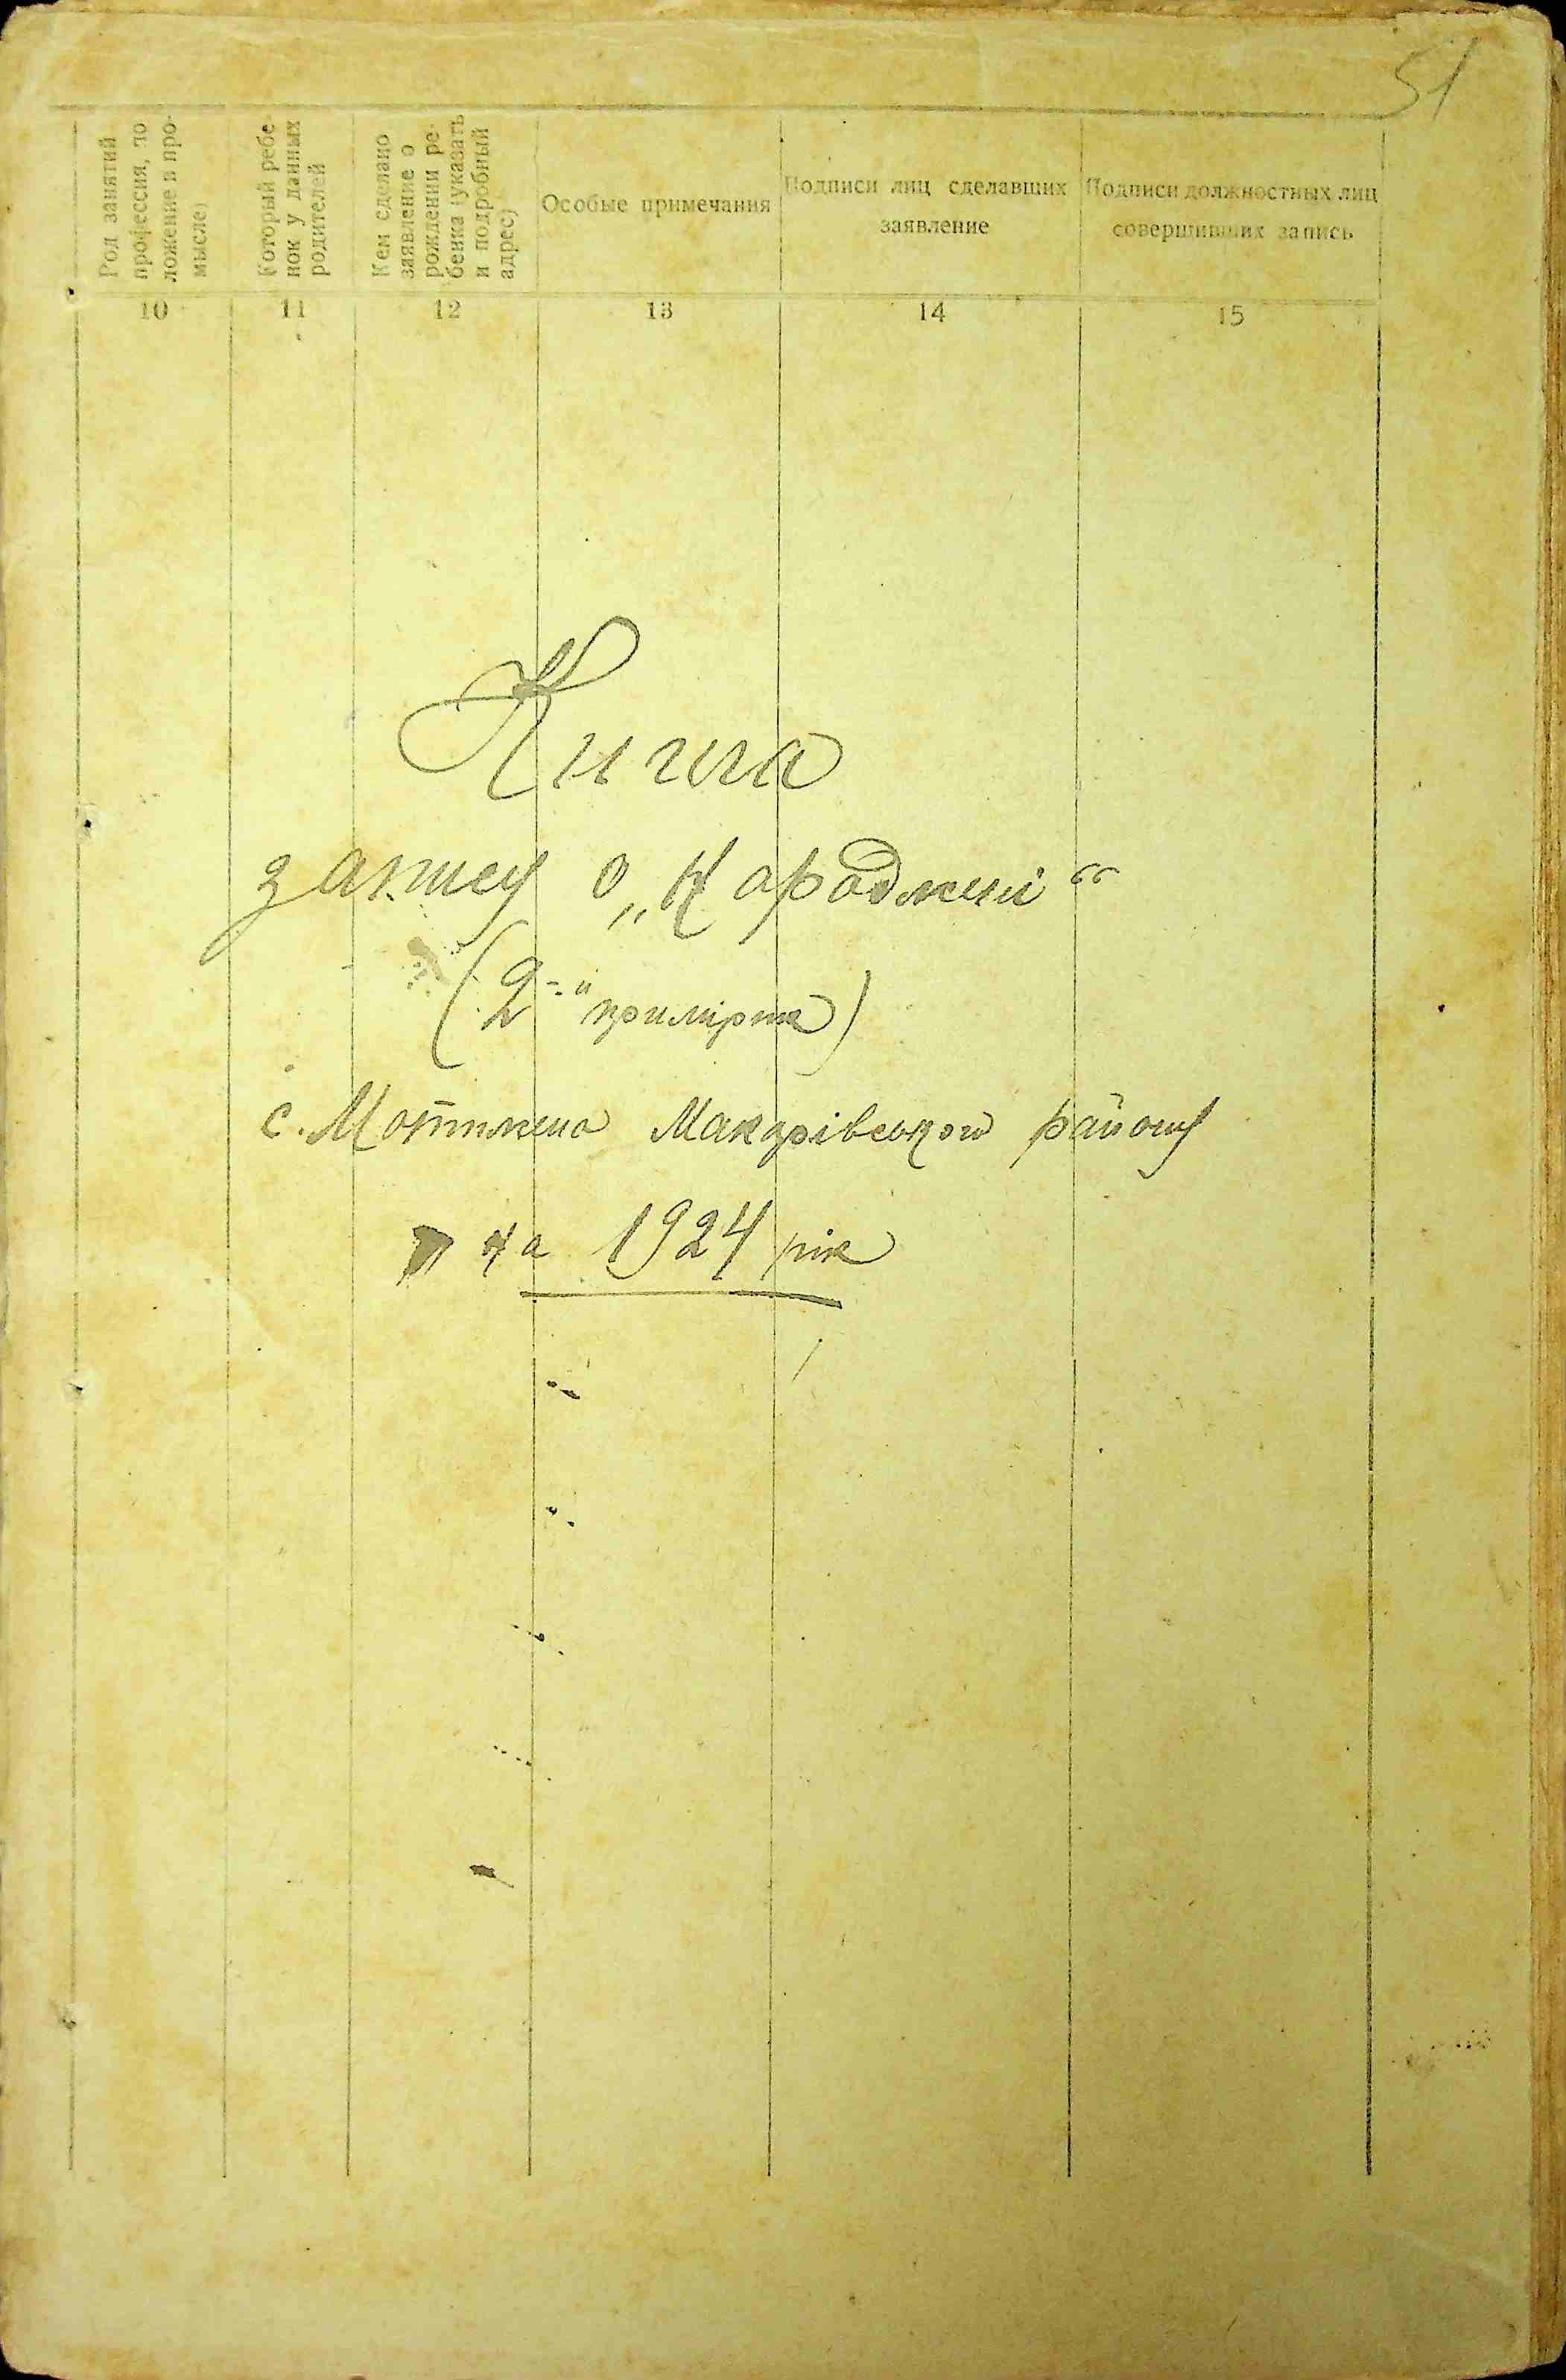 51
Род занятий
профессия, по
ложение в про-
мысле)
Который ребе-
нок у данных
родителей
Кем сделано
заявление о
рождении ре-
бенка (указать
и подробный
адрес)
Особые примечания
Подписи лиц сделавших
заявление
Подписи должностных лиц
совершивших запись
10 11 12 13 14 15
Книга
запису о „Народжені“
(2-й примірник)
с. Мотижино Макарівського району
на 1924 рік